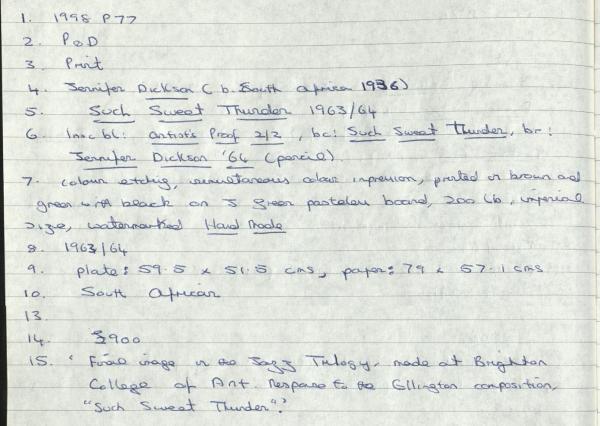 1. 1998 P77
2. P&D
3. Print
4. Jennifer Dickson (b. South Africa 1936)
5. Such Sweet Thunder 1963/64
6. Insc bl: artist's Proof 2/2, bc: Such Sweet Thunder, br:
Jennifer Dickson '64 (pencil)
7. Colour etching, simultaneous colour impression, printed in brown and
green with black on J Green pastelou board, 200 lb, imperial
size, watermarked Hand Made
8. 1963/64
9. plate: 59.5 x 51.5 cms, paper: 79 x 57.1 cms
10. South African
13.
14. £900
15. 'Final image in the Jazz Trilogy, made at Brighton
College of Art. Response to the Ellington composition,
"Such Sweet Thunder".'